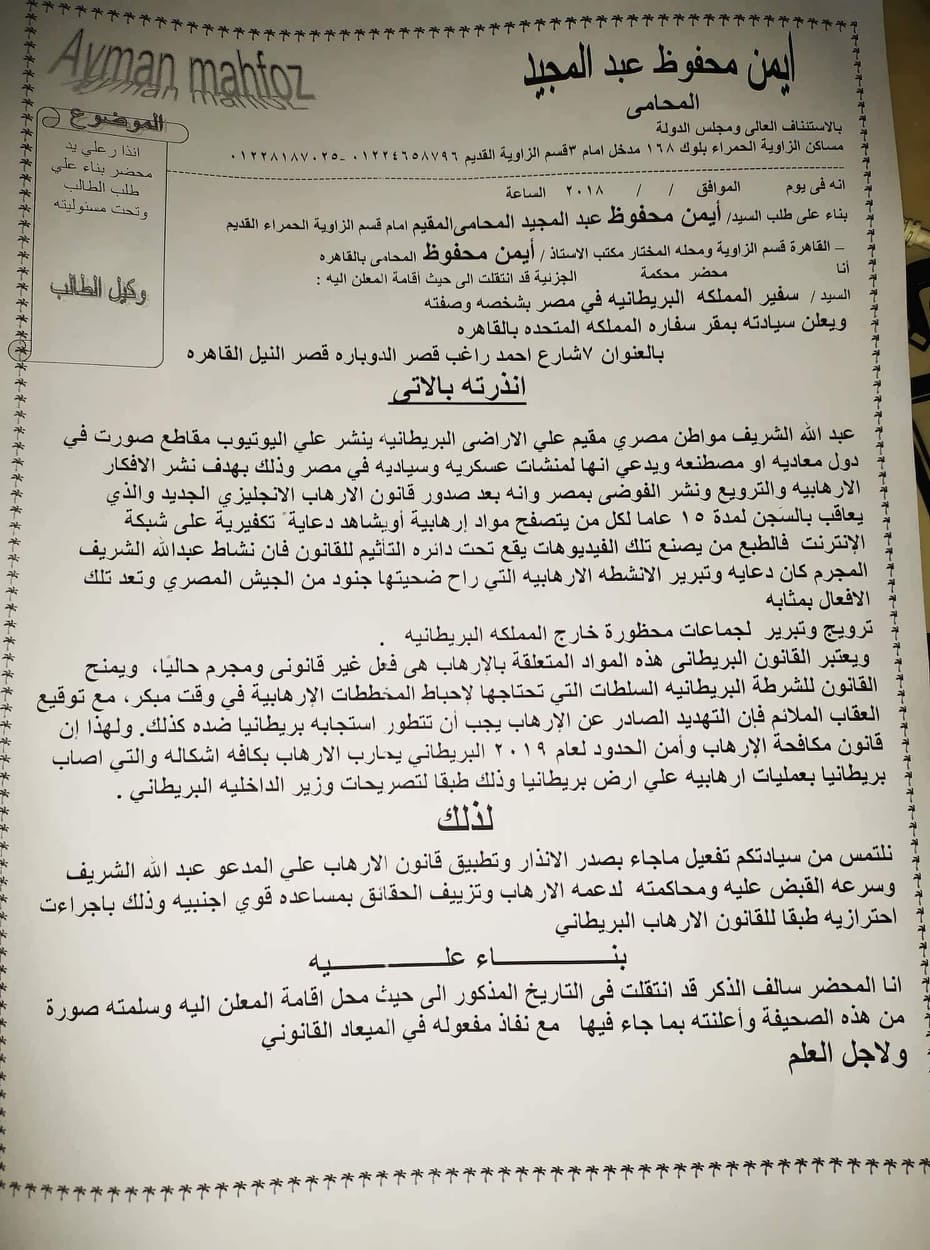 Ayman mahfoz
أيمن محفوظ عبد المجيد
المحامى
بالاستئناف العالى ومجلس الدولة
مساكن الزاوية الحمراء بلوك ١٦٨ مدخل امام ٣قسم الزاوية القديم ٠١٢٢٤٦٥٨٧٩٦ -٠١٢٢٨١٨٧٠٢٥
الموضوع
انذار علي يد
محضر بناء علي
طلب الطالب
وتحت مسئوليته
وكيل الطالب
انه فى يوم الموافق / / ٢٠١٨ الساعة
بناء على طلب السيد/ أيمن محفوظ عبد المجيد المحامى المقيم امام قسم الزاوية الحمراء القديم
– القاهرة قسم الزاوية ومحله المختار مكتب الاستاذ / أيمن محفوظ المحامى بالقاهره
أنا محضر محكمة الجزئية قد انتقلت الى حيث أقامة المعلن اليه :
السيد / سفير المملكه البريطانيه في مصر بشخصه وصفته
ويعلن سيادته بمقر سفاره المملكه المتحده بالقاهره
بالعنوان ٧شارع احمد راغب قصر الدوباره قصر النيل القاهره
انذرته بالاتى
عبد الله الشريف مواطن مصري مقيم علي الاراضى البريطانيه ينشر علي اليوتيوب مقاطع صورت في
دول معاديه او مصطنعه ويدعي انها لمنشات عسكريه وسياديه في مصر وذلك بهدف نشر الافكار
الارهابيه والترويع ونشر الفوضى بمصر وانه بعد صدور قانون الارهاب الانجليزي الجديد والذي
يعاقب بالسَجن لمدة ١٥ عاما لكل من يتصفح مواد إرهابية أويشاهد دعاية ً تكفيرية على شبكة
الإنترنت فالطبع من يصنع تلك الفيديوهات يقع تحت دائره التأثيم للقانون فان نشاط عبدالله الشريف
المجرم كان دعايه وتبرير الانشطه الارهابيه التي راح ضحيتها جنود من الجيش المصري وتعد تلك
الافعال بمثابه
ترويج وتبرير لجماعات محظورة خارج المملكه البريطانيه .
ويعتبر القانون البريطانى هذه المواد المتعلقة بالإرهاب هى فعل غير قانونى ومجرم حاليًا، ويمنح
القانون للشرطة البريطانيه السلطات التي تحتاجها لإحباط المخططات الإرهابية في وقت مبكر، مع توقيع
العقاب الملائم فإن التهديد الصادر عن الإرهاب يجب أن تتطور استجابه بريطانيا ضده كذلك. ولهذا إن
قانون مكافحة الإرهاب وأمن الحدود لعام ٢٠١٩ البريطاني يحارب الارهاب بكافه اشكاله والتي اصاب
بريطانيا بعمليات ارهابيه علي ارض بريطانيا وذلك طبقا لتصريحات وزير الداخليه البريطاني .
لذلك
نلتمس من سيادتكم تفعيل ماجاء بصدر الانذار وتطبيق قانون الارهاب علي المدعو عبد الله الشريف
وسرعه القبض عليه ومحاكمته لدعمه الارهاب وتزييف الحقائق بمساعده قوي اجنبيه وذلك باجراءت
احترازيه طبقا للقانون الارهاب البريطاني
بنـــــاء علـــــيه
انا المحضر سالف الذكر قد انتقلت فى التاريخ المذكور الى حيث محل اقامة المعلن اليه وسلمته صورة
من هذه الصحيفة وأعلنته بما جاء فيها مع نفاذ مفعوله في الميعاد القانوني
ولاجل العلم